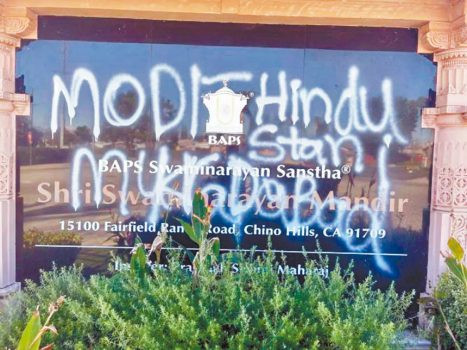 MODI Hindu
Stan
MURDABad
BAPS
BAPS Swaminarayan Sanstha®
Shri Swaminarayan Mandir
15100 Fairfield Ranch Road, Chino Hills, CA 91709
Swami Maharaj